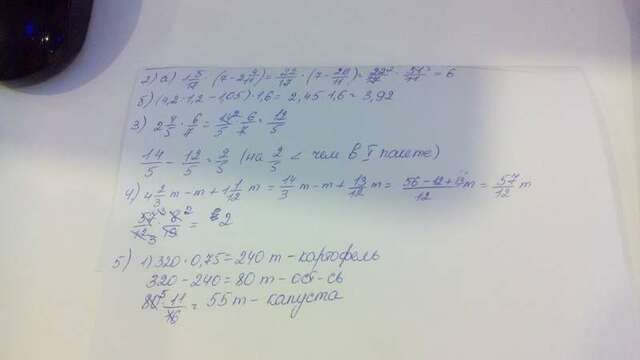 2) а) 1 5/17 · (7 - 2 9/11) = 22/17 · (7 - 20/11) = 22/17 · 51/11 = 6
б) (4,2 · 1,2 - 1,05) · 1,6 = 2,45 · 1,6 = 3,92
3) 2 4/5 · 6/7 = 14/5 · 6/7 = 12/5
14/5 - 12/5 = 2/5 (на 2/5 < чем в I пакете)
4) 4 2/3 m - m + 1 1/12 m = 14/3 m - m + 13/12 m = (56 - 12 + 13)/12 m = 57/12 m
57/12 · 8/19 = 2
5) 1) 320 · 0,75 = 240 т - картофель
320 - 240 = 80 т - ост-сь
80 · 11/16 = 55 т - капуста